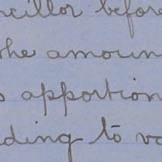 ncillor before
the amoun
s apportion
ding to v